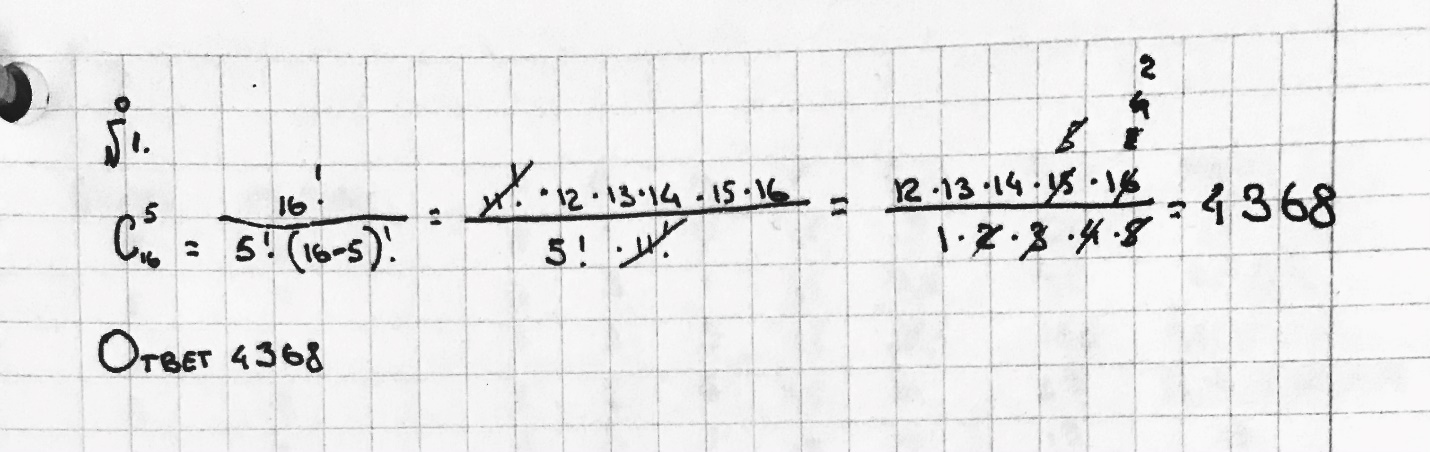 №1.
C₁₆⁵ = 16! / 5!(16-5)! = 11!·12·13·14·15·16 / 5!·11! = 12·13·14·15·16 / 1·2·3·4·5 = 4368
Ответ 4368